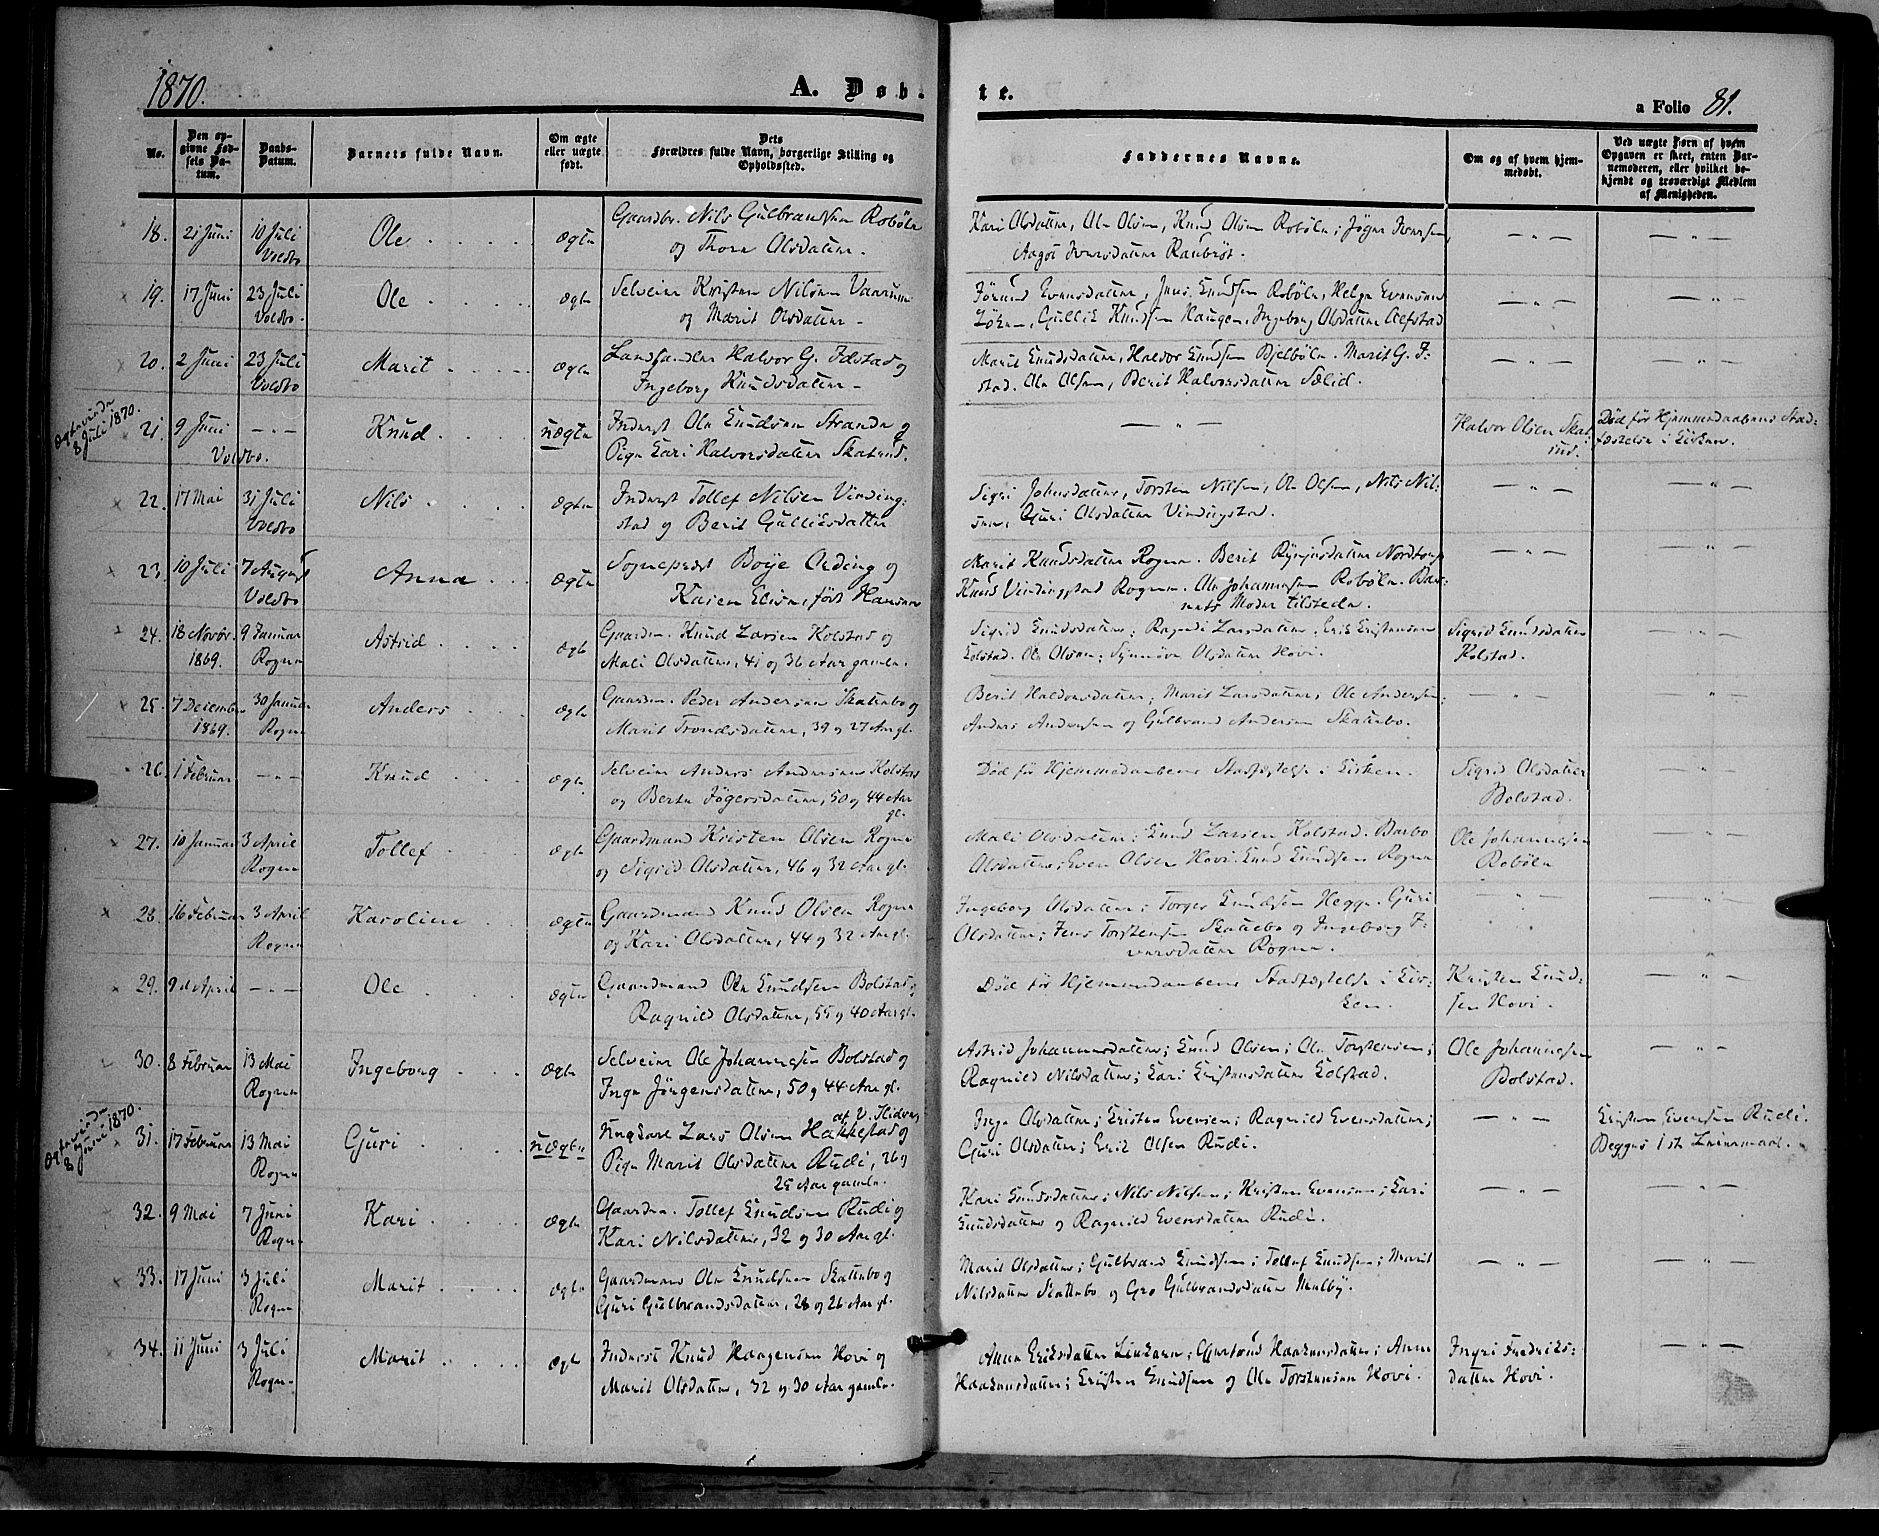 1870.
A. Døb-
te.
a Folio 81.
No.
Den op-
givne Fød-
sels Da-
tum.
Daabs-
Datum.
Barnets fulde Navn.
Om ægte
eller uægte
født.
Dets
Forældres fulde Navn, borgerlige Stilling og
Opholdssted.
Faddernes Navne.
Om og af hvem hjem-
medøbt.
Ved uægte Børn af hvem
Opgaven er skeet, enten Bar-
nemoderen, eller hvilket be-
kjendt og troværdigt Medlem
af Menigheden.
18. 21 Juni 10 Juli Ole ægte Gaardbr. Nils Gulbrandsen Robøle Kari Olsdatter, Ole Olsen, Knud Olsen Robøle; Jøger Iversen,
Voldbo og Thora Olsdatter. Aagot Iversdatter Raubrøt.
19. 17 Juni 23 Juli Ole ægte Selveier Kristen Nilsen Jørand Evensdatter, Jens Knudsen Robøle, Helge Evensen
Voldbo. og Marit Olsdatter Løken, Gullik Knudsen Haugen, Ingeborg Olsdatter Alfstad
20. 2 Juni 23 Juli Marit ægte Halvor G. Marit Knudsdatter, Halvor Knudsen Bjelbøle. Marit G.
Voldbo Ingeborg Knudsdatter stad. Ole Olsen, Berit Halvorsdatter Sælid.
Ægteviede
8 Juli 1870.
21. 9 Juni Knud uægte Inderst Ole Knudsen Strande og Halvor Olsen Skat- Død før Hjemmedaabens Stad-
Voldbo. Pige Kari Halvorsdatter Skatrud. rud. fæstelse i Kirken.
22. 17 Mai 31 Juli Nils ægte Inderst Tollef Nilsen Vinding- Sigri Johnsdatter, Torsten Nilsen, Ole Olsen, Nils Nil-
Voldbo stad og Berit Gulliksdatter sen, Guri Olsdatter Vindingstad.
23. 10 Juli 7 August Anna ægte Sognepræst Boije Ording og Marit Knudsdatter Rogne. Berit Nordtorp
Voldbo Karen Elise, født Hansen Knud Vindingstad Rogne. Ole Johannesen Robøle. Bar-
nets Moder tilstede.
24. 18 Novbr. 9 Januar Astrid ægte Gaardm. Knud Larsen Kolstad og Sigrid Knudsdatter; Ragnild Larsdatter, Erik Kristensen Sigrid Knudsdatter
1869. Rogne Mali Olsdatter, 41 og 36 Aar gamle. Kolstad. Ole Olsen; Synnøve Olsdatter Hovi. Kolstad.
25. 7 December 30 Januar Anders ægte Gaardm. Peder Andersen Skattebo og Berit Haldorsdatter; Marit Larsdatter; Ole Andersen;
1869. Rogne Marit Trondsdatter, 39 og 27 Aar gl. Anders Andersen og Gulbrand Andersen Skattebo.
26. 1 Februar Knud ægte Selveier Anders Andersen Kolstad Død før Hjemmedaabens Stadfæstelse i Kirken. Sigrid Olsdatter
og Berte Jøgersdatter, 50 og 44 Aar Bolstad.
gl.
27. 10 Januar 3 April Tollef ægte Gaardmand Kristen Olsen Rogne Mali Olsdatter; Knud Larsen Kolstad. Barbo Ole Johannesen
Rogne og Sigrid Olsdatter, 46 og 32 Aar gl. Olsdatter; Even Olsen Hovi; Knud Knudsen Rogne Robøle
28. 16 Februar 3 April Karoline ægte Gaardmand Knud Olsen Rogne Ingeborg Olsdatter; Torger Knudsen Hegge. Guri
Rogne og Kari Olsdatter, 44 og 32 Aar gl. Olsdatter; Jens Torstensen Skattebo og Ingeborg I-
versdatter Rogne.
29. 9de April Ole ægte Gaardmand Ole Knudsen Bolstad og Død før Hjemmedaabens Stadfæstelse i Kir- Kristen Knud-
Ragnild Olsdatter, 55 og 40 Aar gl. ken. sen Hovi.
30. 8 Februar 13 Mai Ingeborg ægte Selveier Ole Johannesen Bolstad og Astrid Johannesdatter; Knud Olsen; Ole Torstensen; Ole Johannesen
Rogne Inge Jørgensdatter, 50 og 44 Aar gl. Ragnild Nilsdatter; Kari Kristensdatter Kolstad. Bolstad.
Ægteviede
8 Juni 1870.
af V. Slidre,
31. 17 Februar 13 Mai Guri uægte Ungkarl Lars Olsen Hakkestad og Inge Olsdatter; Kristen Evensen; Ragnild Evensdatter; Kristen Evensen Rudi.
Rogne Pige Marit Olsdatter Rudi, 26 og Guri Olsdatter; Erik Olsen Rudi. Begges 1ste Leiermaal.
25 Aar gamle.
32. 9 Mai 7 Juni Kari ægte Gaardm. Tollef Knudsen Rudi og Kari Knudsdatter; Nils Nilsen; Kristen Evensen; Kari
Rogne Kari Nilsdatter, 32 og 30 Aar gl. Knudsdatter og Ragnild Evensdatter Rudi.
33. 17 Juni 3 Juli Marit ægte Gaardmand Ole Knudsen Skattebo og Marit Olsdatter; Gulbrand Knudsen; Tollef Knudsen; Marit
Rogne Guri Gulbrandsdatter, 28 og 26 Aar gl. Nilsdatter Skattebo og Gro Gulbrandsdatter Melby.
34. 11 Juni 3 Juli Marit ægte Inderst Knud Haagensen Hovi og Anne Eriksdatter; Gjertrud Haakensdatter; Anne Ingri Fredriks-
Rogne Marit Olsdatter, 32 og 30 Aar gamle. Haakensdatter; Kristen Knudsen og Ole Torstensen Hovi. datter Hovi.